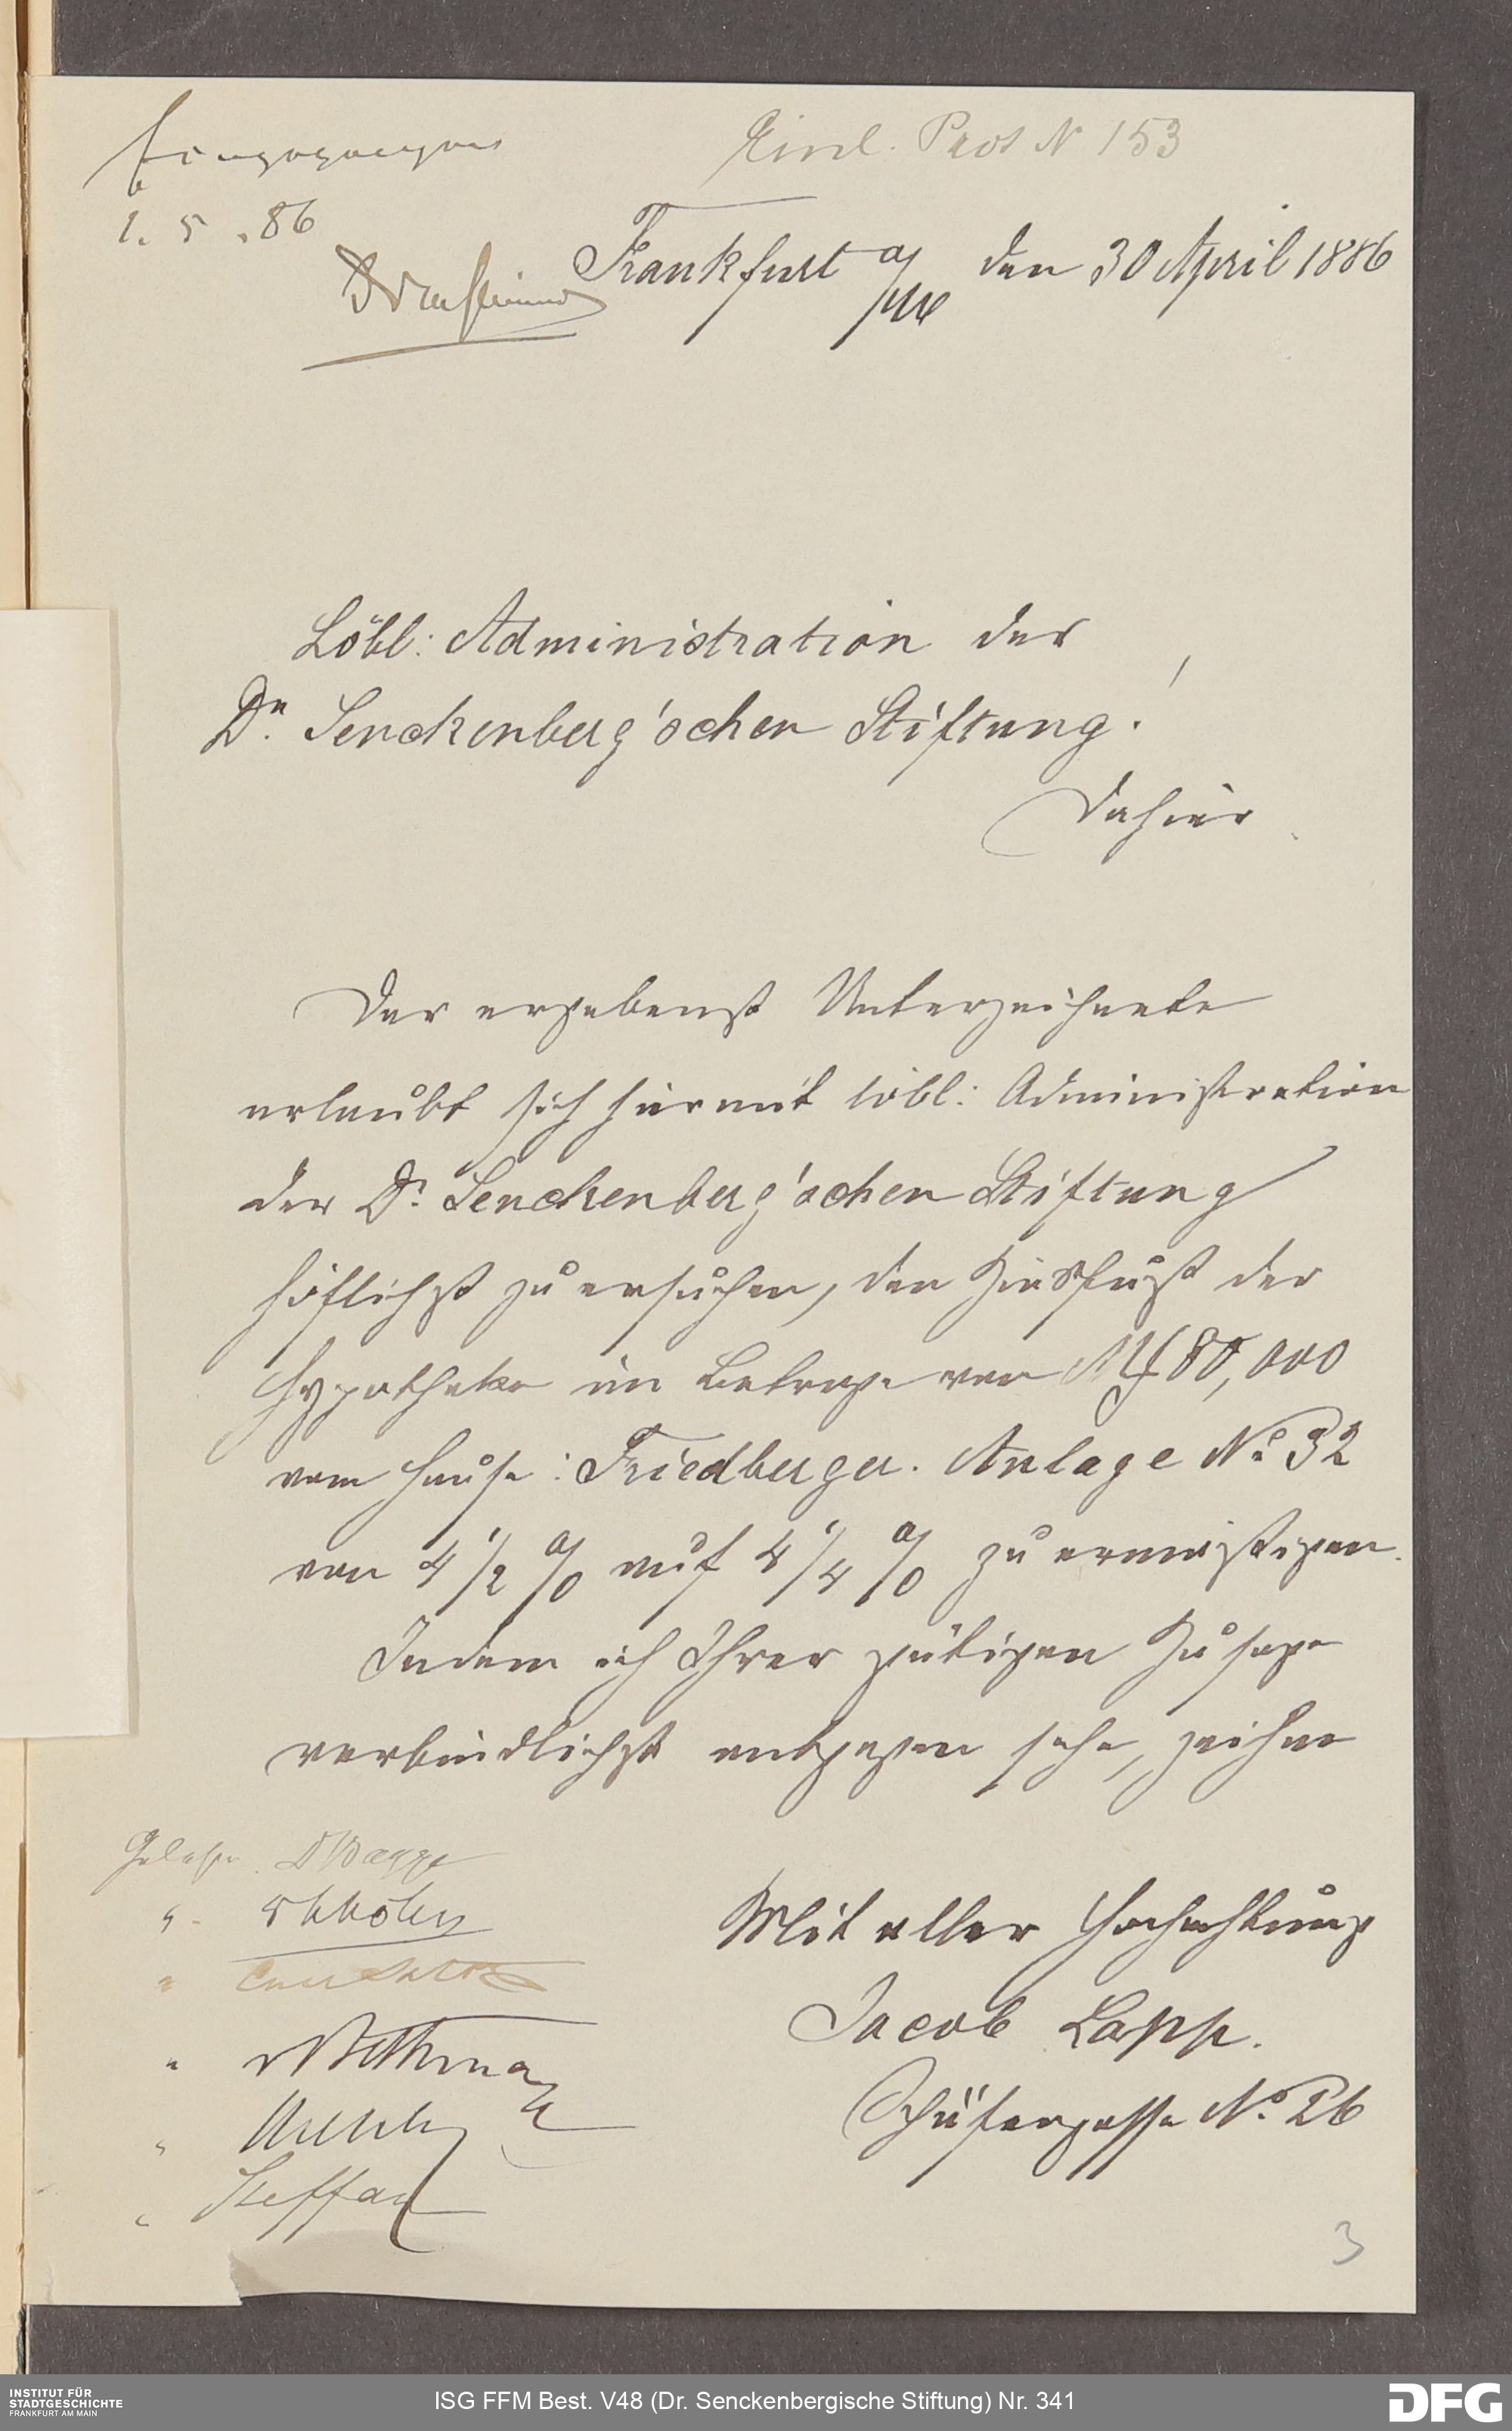 Eingegangen
Einl. Prot N 153
1. 5. 86
Frankfurt a/M den 30 April 1886
Löbl: Administration der
Dr. Senckenberg'schen Stiftung!
Dahier
Der ergebenst Unterzeichnete
erlaubt sich hiermit löbl: Administration
der Dr. Senckenberg'schen Stiftung
höflichst zu ersuchen, den Zinsfuß der
Hypotheke im Betrage von M 80,000
vom Hause: Friedberger. Anlage No 32
von 4 1/2 % auf 4 1/4 % zu ermäßigen.
Indem ich Ihrer gütigen Zusage
verbindlichst entgegen sehe, zeichne
Gelesen
Mit aller Hochachtung
Jacob Lapp.
Schäfergasse No. 26
"
"
"
"
"
Steffan
3
INSTITUT FÜR
STADTGESCHICHTE
FRANKFURT AM MAIN
ISG FFM Best. V48 (Dr. Senckenbergische Stiftung) Nr. 341
DFG